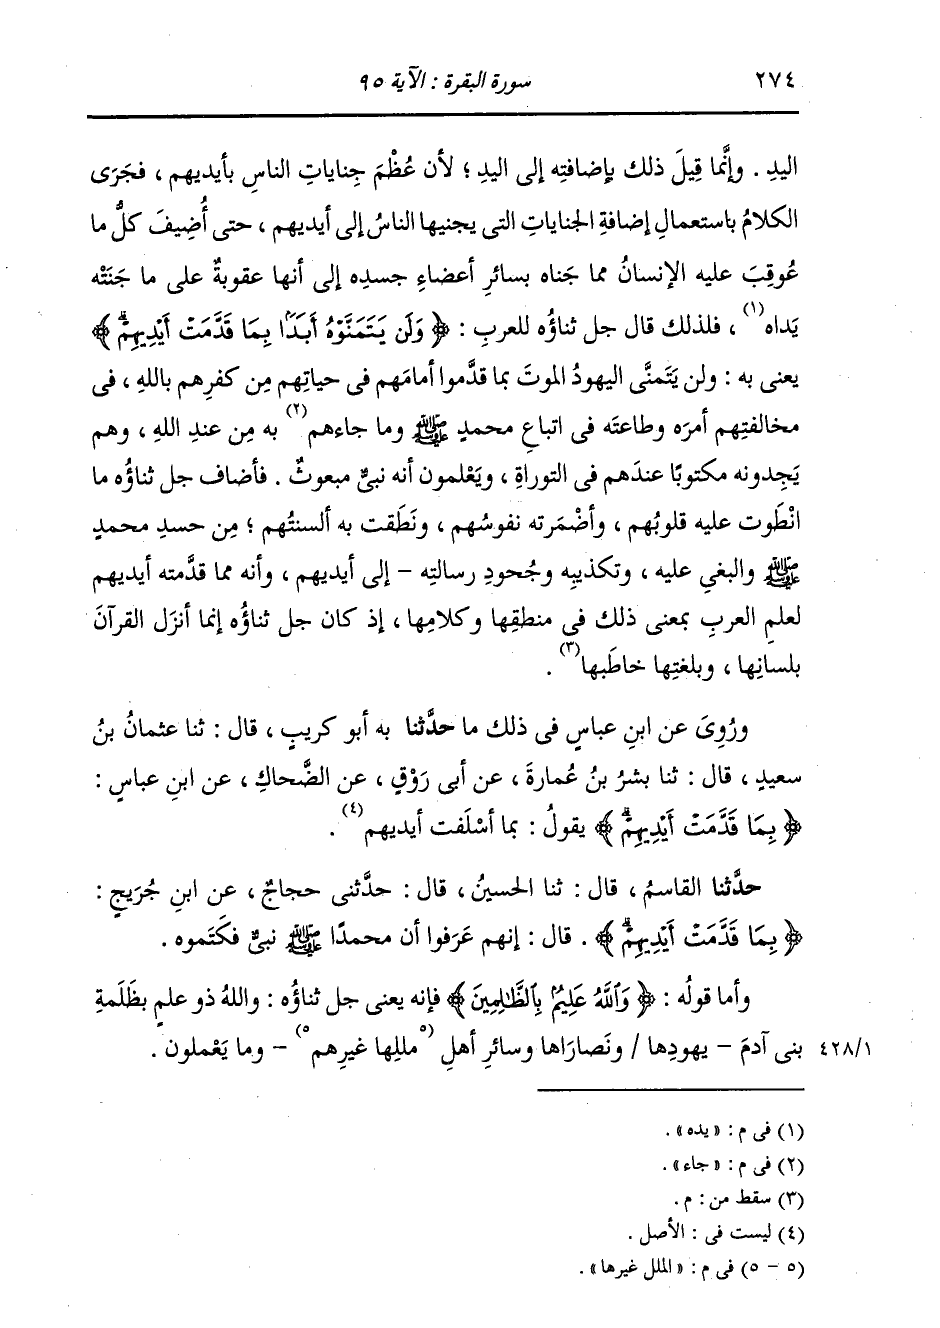 ٢٧٤ سورة البقرة : الآية ٩٥
اليدِ . وإنَّما قِيلَ ذلك بإضافتِه إلى اليدِ ؛ لأن عُظْمَ جِناياتِ الناسِ بأيديهم ، فجَرَى
الكلامُ باستعمالِ إضافةِ الجناياتِ التى يجنيها الناسُ إلى أيديهم ، حتى أُضِيفَ كلُّ ما
عُوقِبَ عليه الإنسانُ مما جَناه بسائرِ أعضاءِ جسدِه إلى أنها عقوبةٌ على ما جَنَتْه
يَداه(١) ، فلذلك قال جل ثناؤُه للعربِ : ﴿ وَلَن يَتَمَنَّوْهُ أَبَدًۢا بِمَا قَدَّمَتْ أَيْدِيهِمْۗ ﴾
يعنى به : ولن يَتَمنَّى اليهودُ الموتَ بما قدَّموا أمامَهم فى حياتِهم مِن كفرِهم باللهِ ، فى
مخالفتِهم أمرَه وطاعتَه فى اتباعِ محمدٍ ﷺ وما جاءهم(٢) به مِن عندِ اللهِ ، وهم
يَجِدونه مكتوبًا عندَهم فى التوراةِ ، ويَعْلمون أنه نبىٌّ مبعوثٌ . فأضاف جل ثناؤُه ما
انْطَوت عليه قلوبُهم ، وأضْمَرته نفوسُهم ، ونَطَقت به ألسنتُهم ؛ مِن حسدِ محمدٍ
ﷺ والبغىِ عليه ، وتكذيبِه وجُحودِ رسالتِه - إلى أيديهم ، وأنه مما قدَّمته أيديهم
لعلمِ العربِ بمعنى ذلك فى منطقِها وكلامِها ، إذ كان جل ثناؤُه إنما أنزَل القرآنَ
بلسانِها ، وبلغتِها خاطَبها(٣) .
ورُوِىَ عن ابنِ عباسٍ فى ذلك ما حدَّثنا به أبو كريبٍ ، قال : ثنا عثمانُ بنُ
سعيدٍ ، قال : ثنا بشرُ بنُ عُمارةَ ، عن أبى رَوْقٍ ، عن الضَّحاكِ ، عن ابنِ عباسٍ :
﴿ بِمَا قَدَّمَتْ أَيْدِيهِمْۗ ﴾ يقولُ : بما أسْلَفت أيديهم(٤) .
حدَّثنا القاسمُ ، قال : ثنا الحسينُ ، قال : حدَّثنى حجاجٌ ، عن ابنِ جُرَيجٍ :
﴿ بِمَا قَدَّمَتْ أَيْدِيهِمْۗ ﴾ . قال : إنهم عَرَفوا أن محمدًا ﷺ نبىٌّ فكَتَموه .
وأما قولُه : ﴿ وَٱللَّهُ عَلِيمٌۢ بِٱلظَّٰلِمِينَ ﴾ فإنه يعنى جل ثناؤُه : واللهُ ذو علمٍ بظَلَمةِ
٤٢٨/١ بنى آدمَ - يهودِها / ونَصارَاها وسائرِ أهلِ (٥مللِها غيرِهم٥) - وما يَعْملون .
(١) فى م : « يده » .
(٢) فى م : « جاء » .
(٣) سقط من : م .
(٤) ليست فى : الأصل .
(٥ - ٥) فى م : « الملل غيرها » .